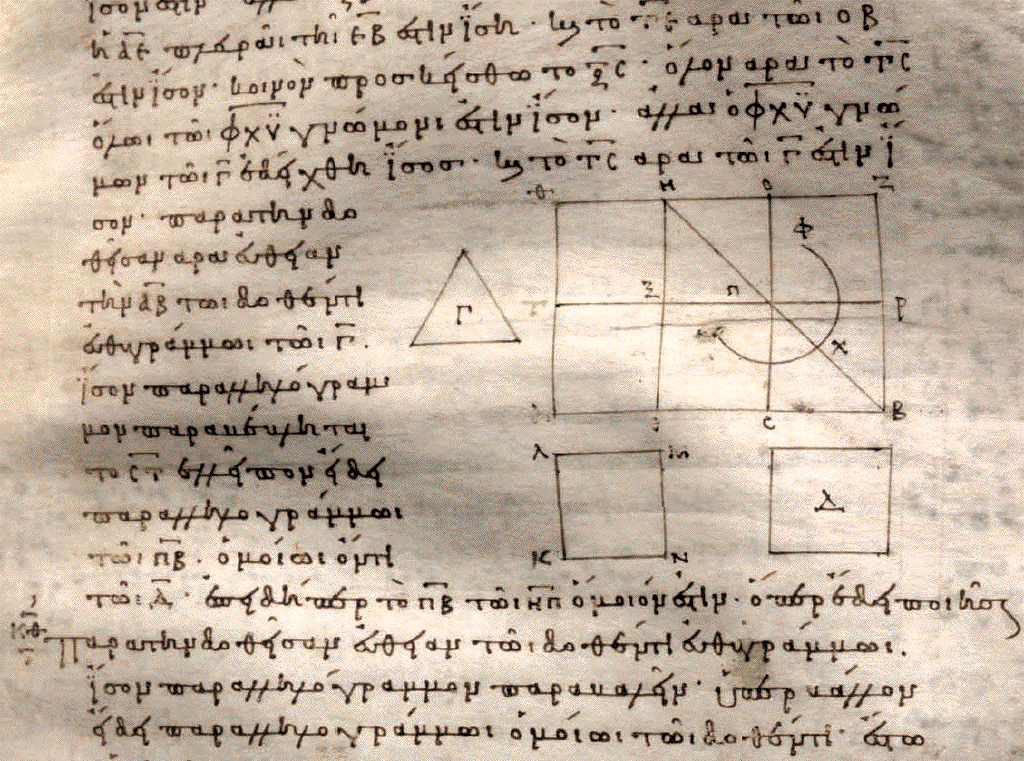 ἡ ΑΕ πλευρᾶι τῆι ΕΒ ἐστὶν ἴση· καὶ τὸ ΤΕ ἄρα τῶι ΟΒ
ἐστὶν ἴσον· κοινὸν προσκείσθω το ΞC· ὅλον ἄρα τὸ ΤC
ὅλωι τῶι ΦΧΫ γνώμονι ἐστὶν ἴσον· ἀλλα ὁ ΦΧΫ γνώ
μων τῶι Γ ἐδείχθη ἴσος· καὶ τὸ ΤC ἄρα τῶι Γ ἐστὶν ἴ
σον· παρα τὴν δο
θεῖσαν ἄρα εὐθεῖαν
τὴν ΑΒ τῶι δοθέντι
εὐθυγράμμωι τῶι Γ.
ἴσον παραλληλόγραμ
μον παραβέβληται
το CΤ ἐλλεῖπον εἴδει
παραλληλογράμμωι
τῶι ΠΒ. ὁμοίωι ὄντι
τῶι Δ. ἐπειδήπερ τὸ ΠΒ τῶι ΗΠ ὅμοιόν ἐστιν· ὅπερ ἔδει ποιῆσαι
ΚΘ
Παρα τὴν δοθεῖσαν εὐθεῖαν τῶι δοθέντι εὐθυγράμμωι.
ἴσον παραλληλόγραμμον παραβαλεῖν· ὑπερβάλλον
εἴδει παραλληλογράμμωι ὁμοίωι τῶι δοθέντι· ἔστω
Θ Η Ο Ζ
Φ
Γ Τ Ξ Π Ρ
Χ
C Β
Λ Μ
Δ
Κ Ν